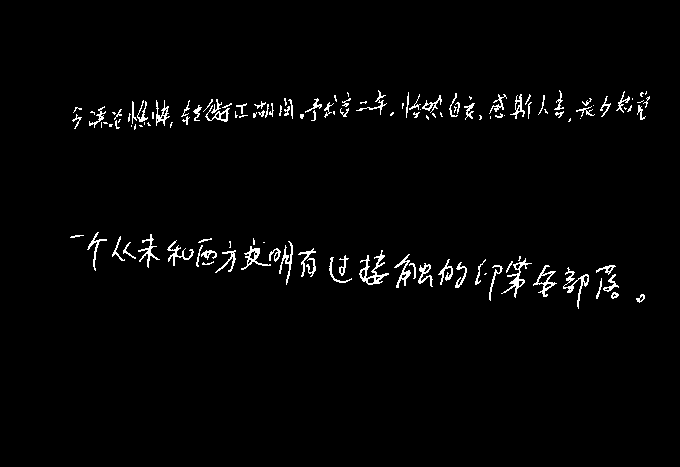 今漂沦憔悴，转徙江湖间。予出官二年，恬然自安，感斯人言，是夕始觉
一个从未和西方文明有过接触的印第安部落。